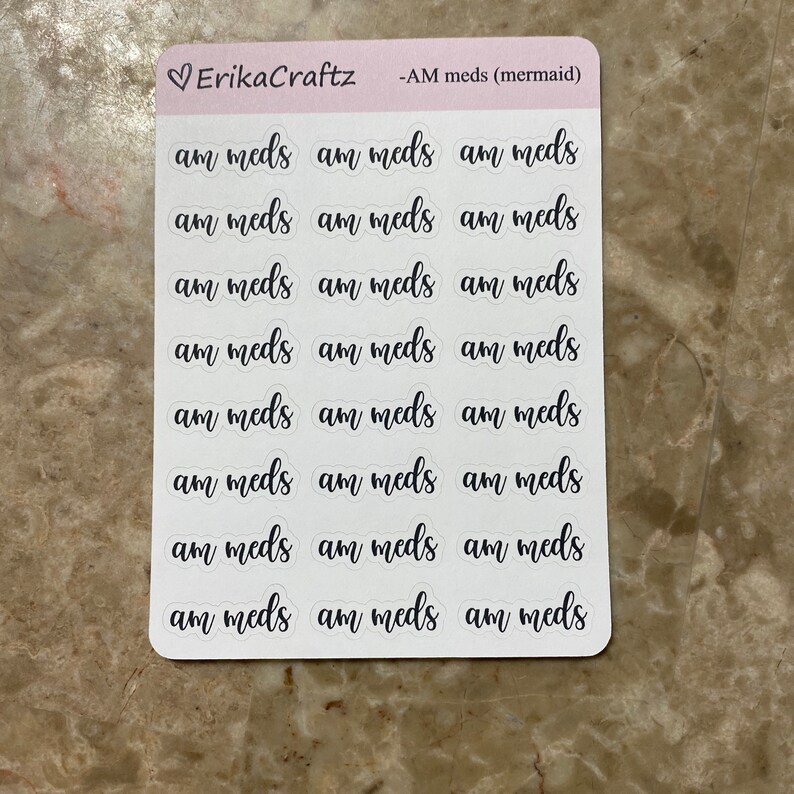 ♡ErikaCraftz -AM meds (mermaid)
am meds am meds am meds
am meds am meds am meds
am meds am meds am meds
am meds am meds am meds
am meds am meds am meds
am meds am meds am meds
am meds am meds am meds
am meds am meds am meds